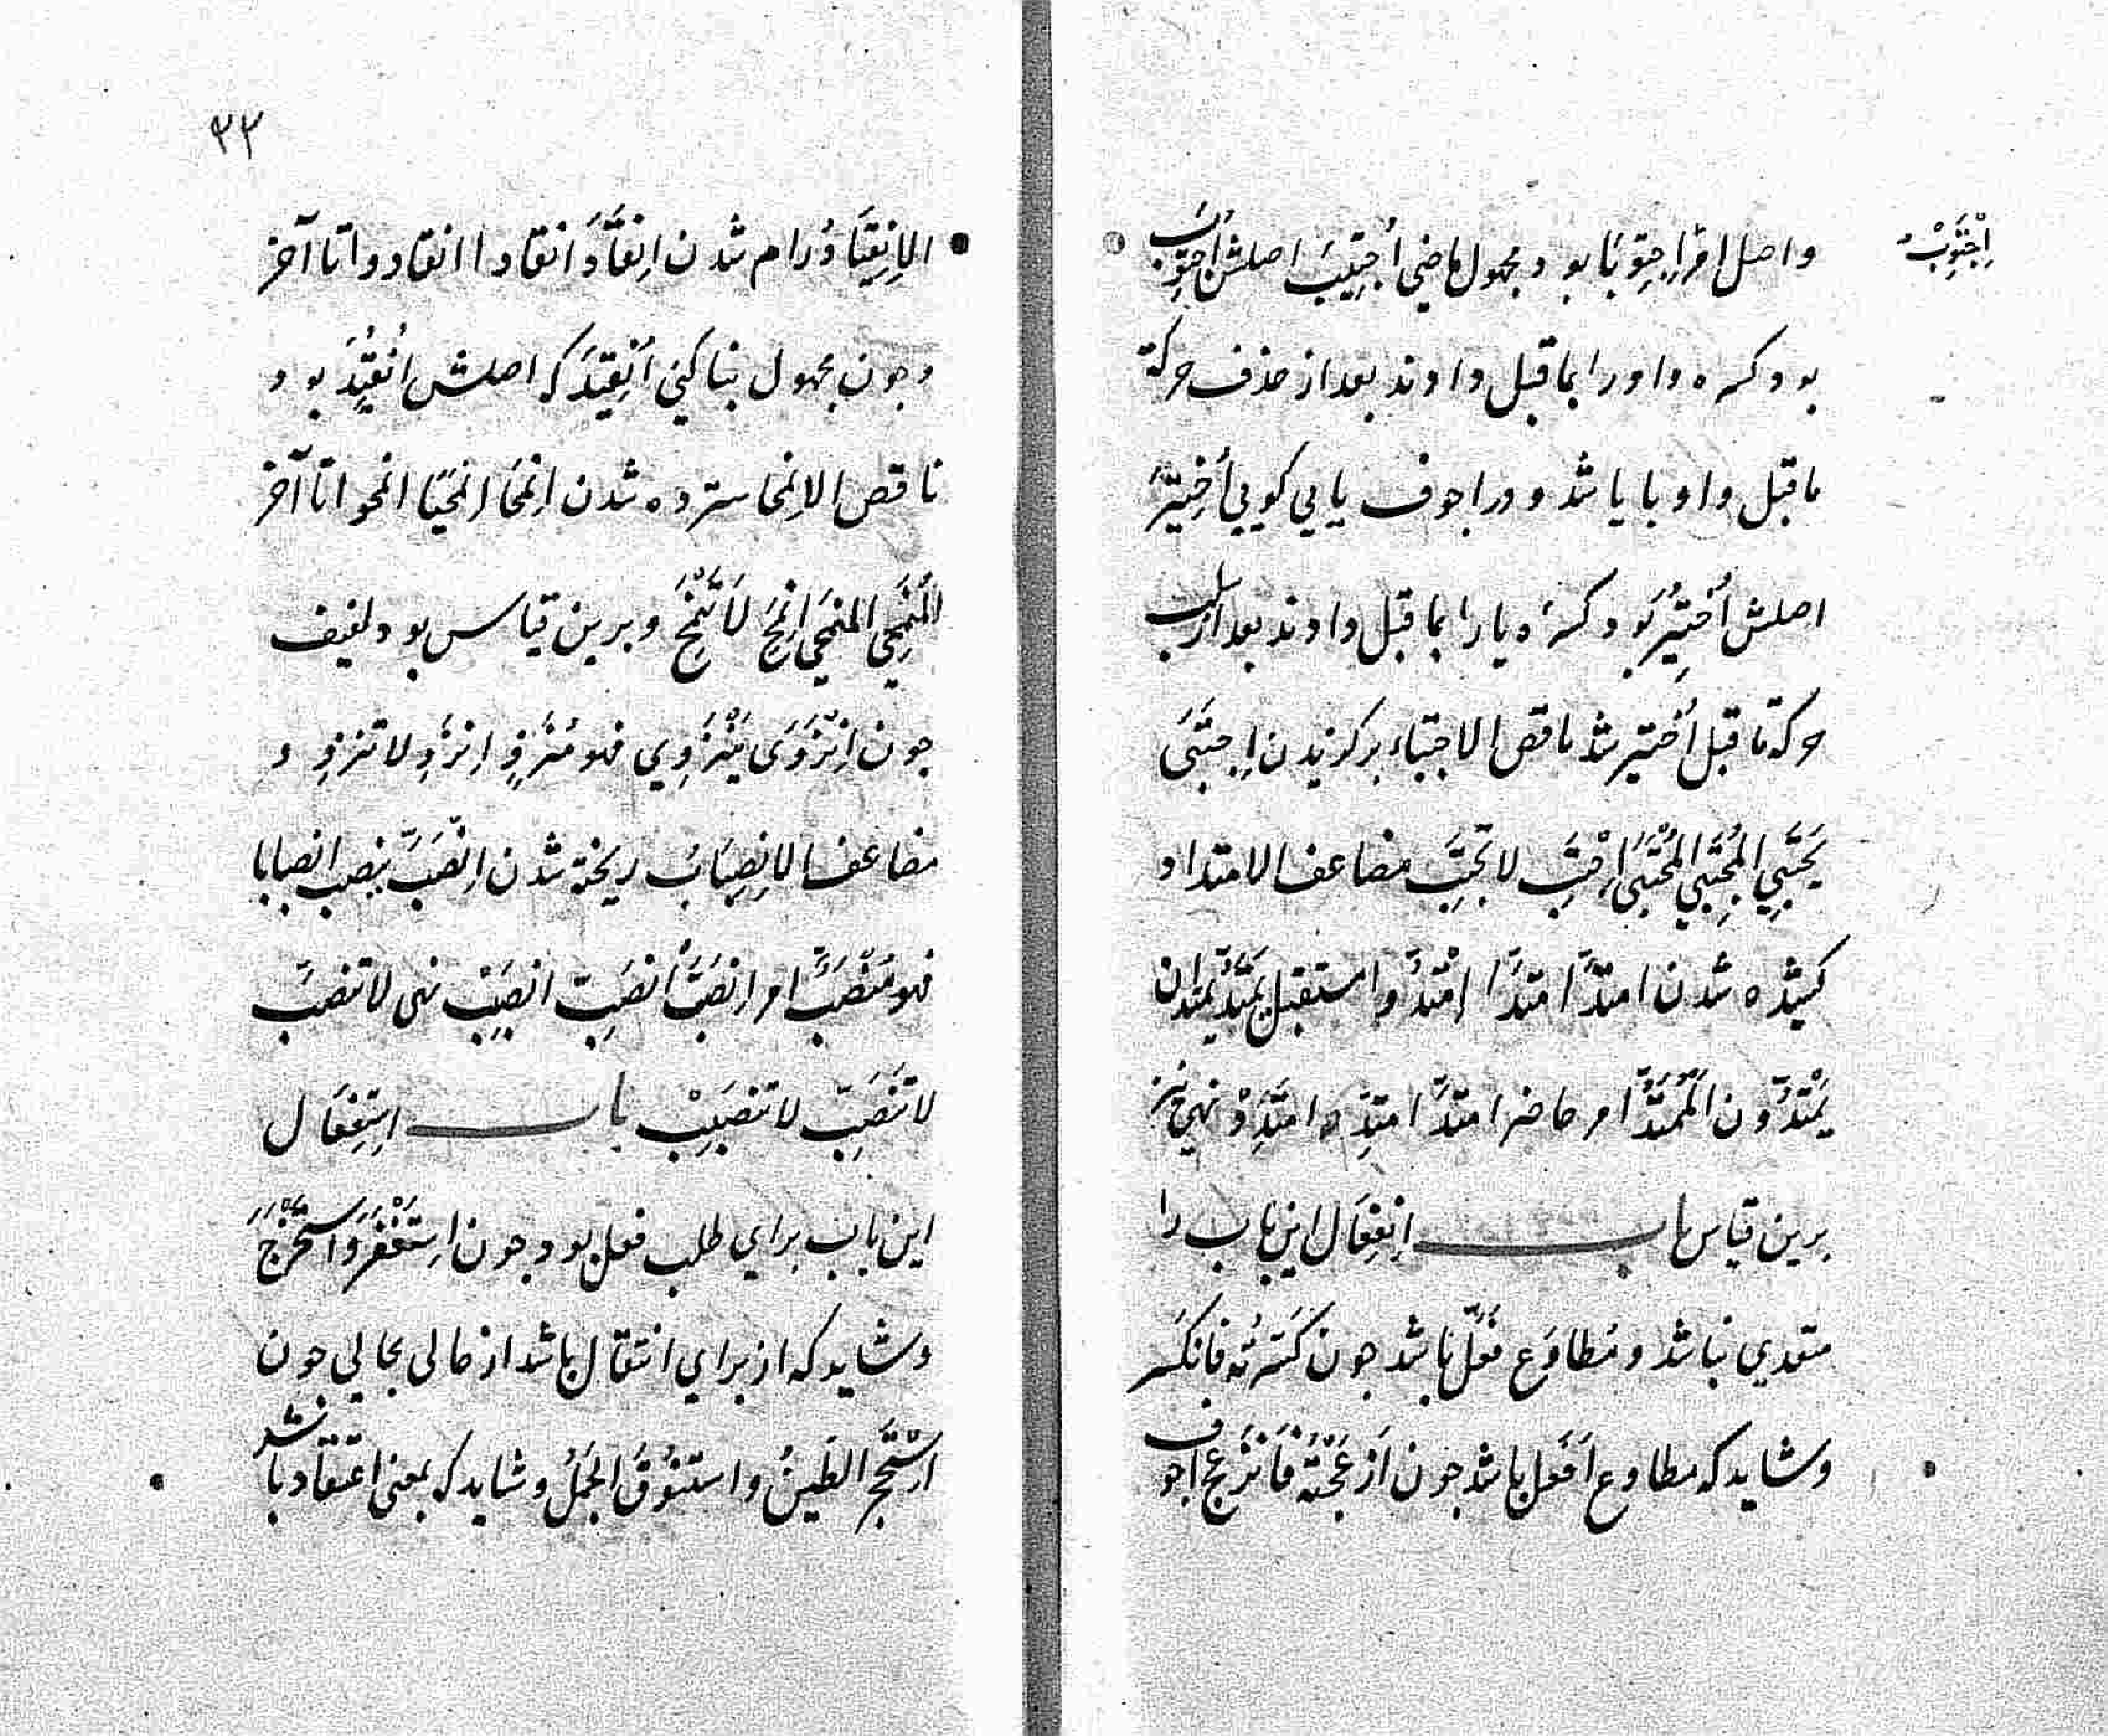 اِجْتَوِبْ
واصل امر اِجتَوِبَا بود و مجهول ماضی اُجْتِیبَ اصلش اُجتُوِبَ
بود کسره واو را بما قبل دادند بعد از حذف حرکة
ما قبل واو با یا شد و در اجوف یایی کویی اُختِیرَ
اصلش اُختُیِرَ بود کسرهٔ یا را بما قبل دادند بعد از سلب
حرکة ما قبل اُختیر شد ناقص الاجتباء برکزیدن اِجتَبَی
یَجتَبِي المُجتَبِي المُجْتَبَی اِجْتَبِ لا تَجتَبِ مضاعف الامتداد
کشیده شدن امتَدَّ امتَدَّا اِمْتَدُّوا مستقبل یَمتَدُّ یَمتَدّان
یَمْتَدُّونَ المُمْتَدُّ امر حاضر امتَدَّ امتَدِّ امتَدِدْ ونهی نیز
برین قیاس باب اِنفِعَال این باب را
متعدي نباشد و مُطاوَع فَعَّلَ باشد جون کَسَرتُه فانکَسَر
وشاید که مطاوع اَفعَل باشد جون اَزعَجْتَهُ فَانزَعَجَ اجوف
۳۳
الاِنقِیَادُ رام شدن اِنقَادَ اَنقادا انقادوا تا آخر
وجون مجهول بنا کنی اُنقِیدَ که اصلش اُنقُیِدَ بود
ناقص الاِنمحا سترده شدن اِنمَحَا اِنمَحَیَا انمحوا تا آخر
المُنمَحِي المنمحَی اِنمَحِ لاَ تَنْمَحِ وبرین قیاس بود لفیف
جون اِنْزَوَی یَنْزَوِي فهو مُنْزَوٍ اِنزَوِ لا تنزوِ و
مضاعف الاِنصِبَابُ ریخته شدن اِنْصَبَّ ینصب انصبابا
فهو مُنْصَبٌّ امر انصَبَّ اَنصَبِّ انصَبِبْ نهی لا تنصَبَّ
لا تَنْصَبِّ لا تنصَبِبْ باب اِستِفعَال
این باب برای طلب فعل بود جون اِستَغْفَرَ وَاستَخْرَجَ
وشاید که از برای انتقال باشد از حالی بحالی جون
اِستَحْجَرَ الطِّینُ واستَنْوَقَ الجَمَلُ وشاید که بمعنی اعتقاد باشد